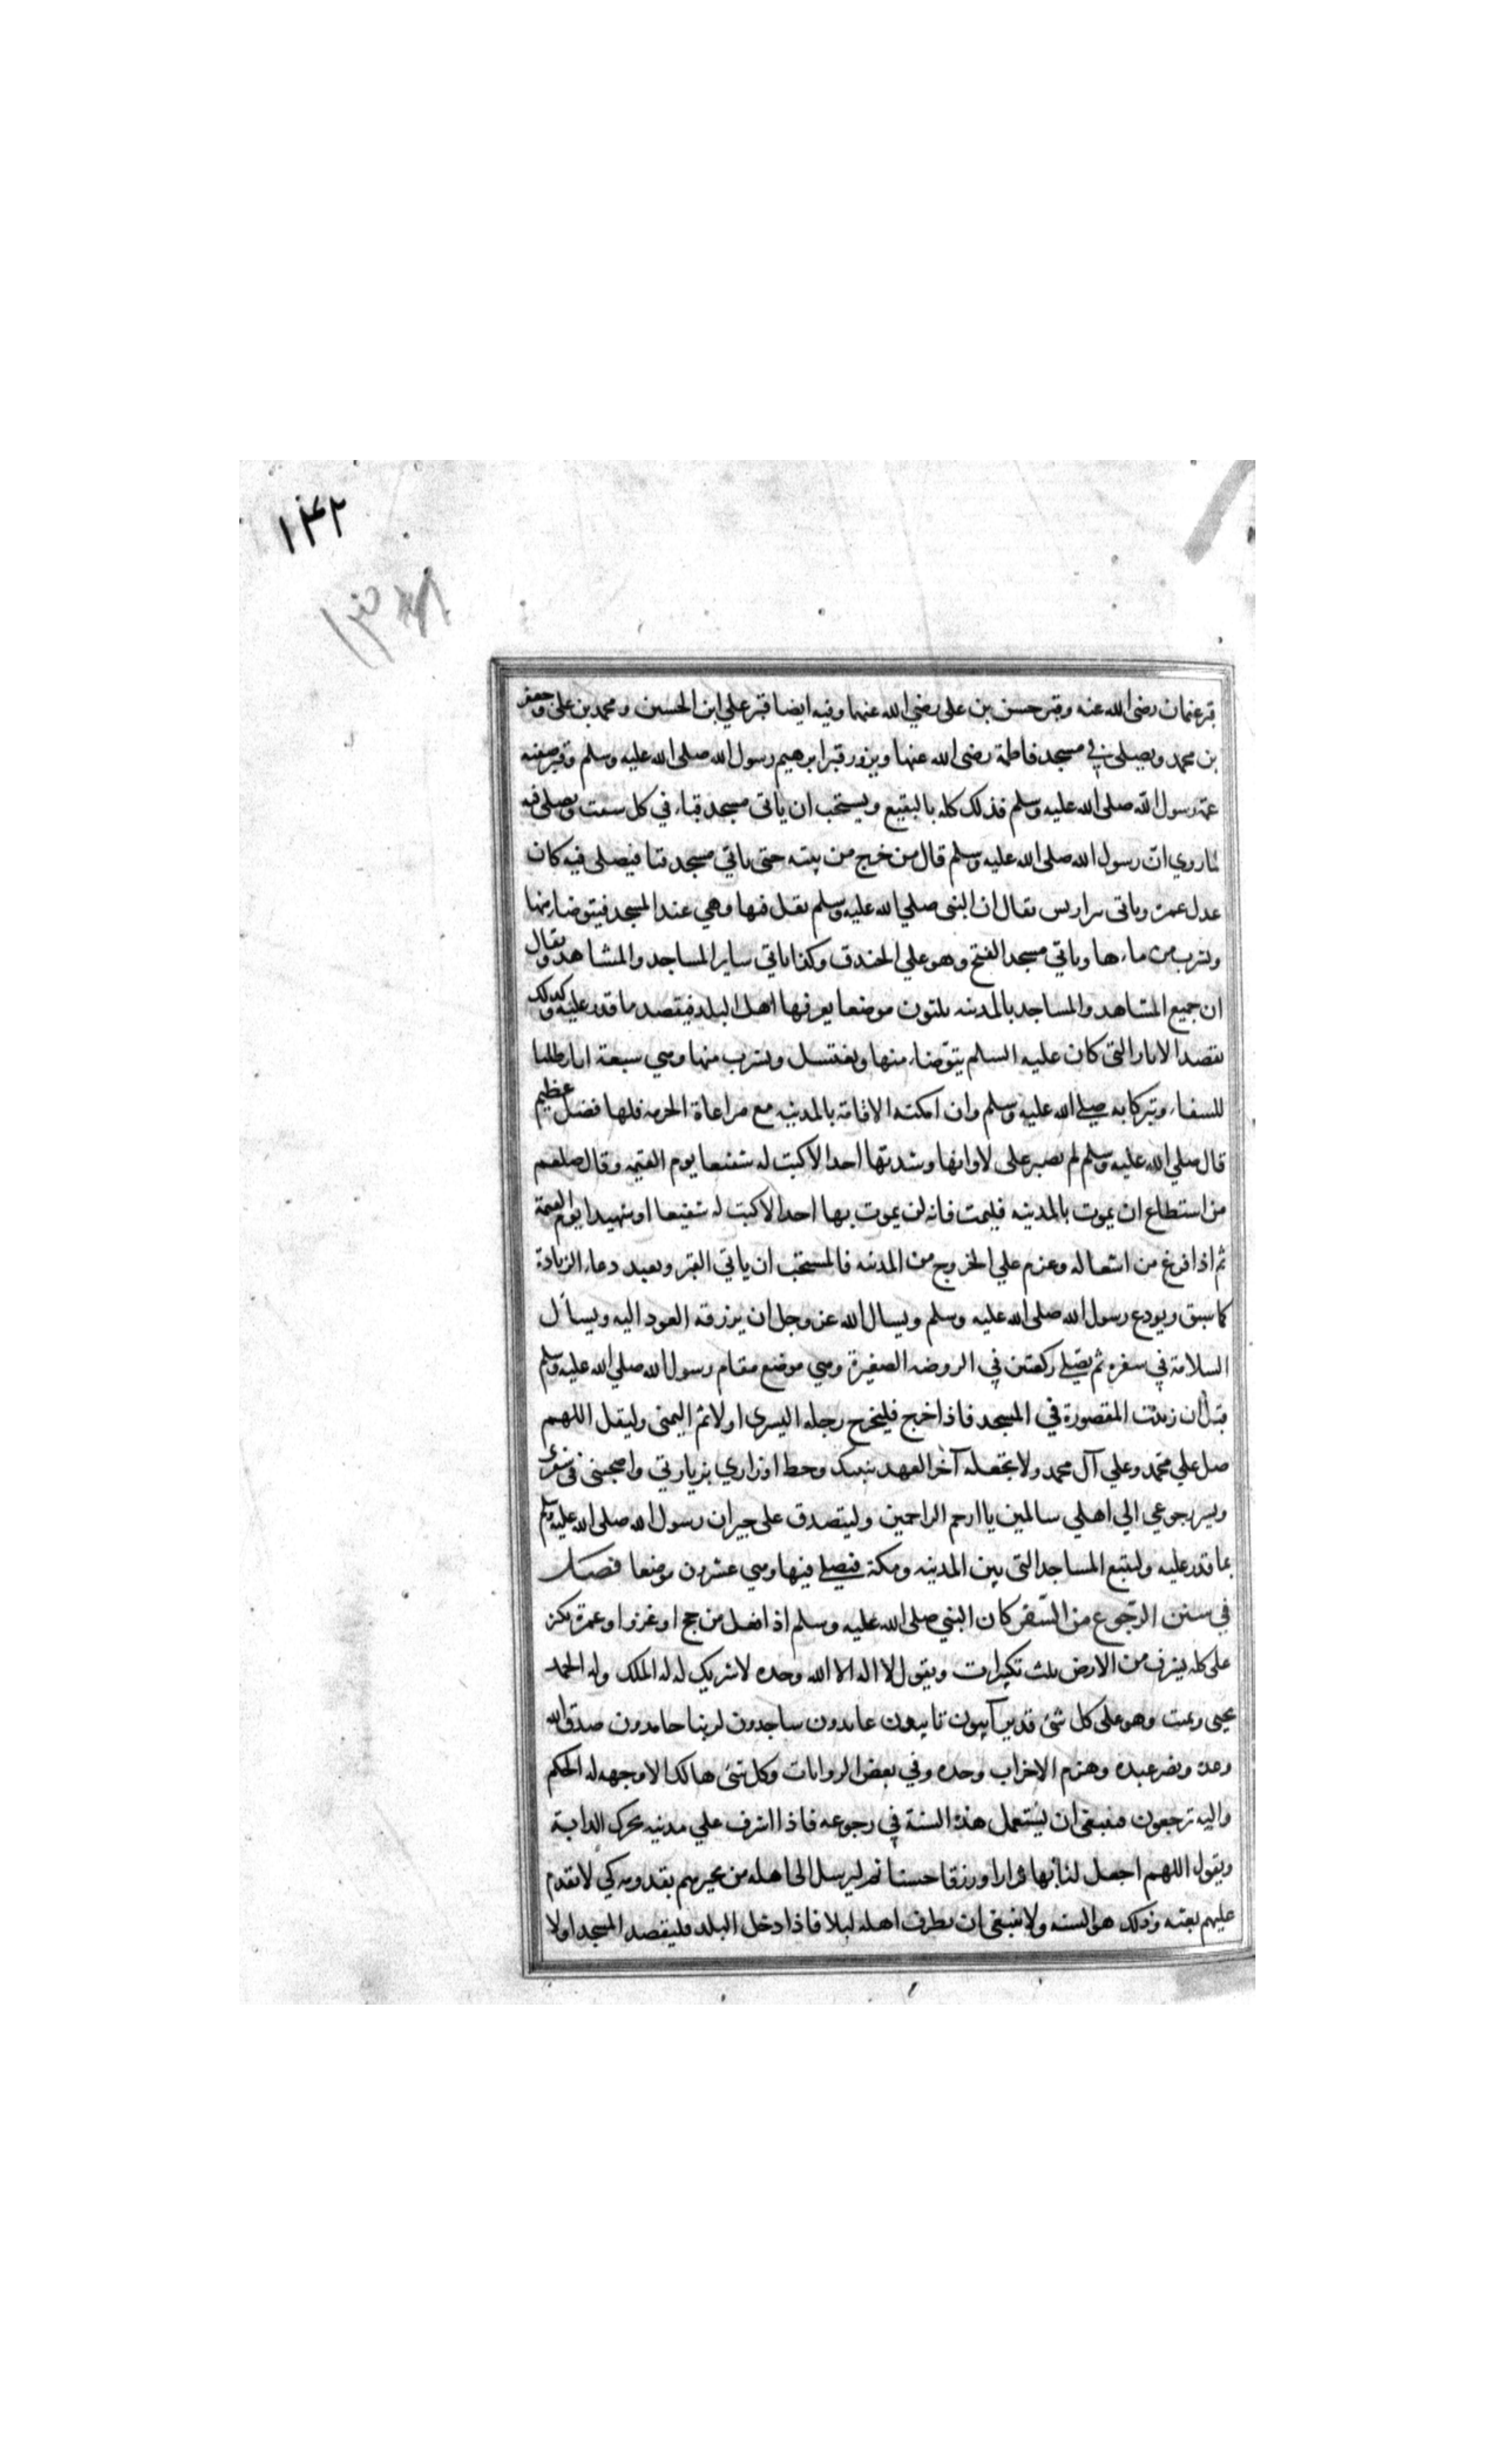 ١٤٢
قبر عثمان رضى الله عنه وقبر حسن بن على رضي الله عنهما وفيه ايضا قبر علي ابن الحسين ومحمد بن على وجعفر
بن محمد ويصلى في مسجد فاطمة رضى الله عنها ويزور قبر ابرهيم رسول الله صلى الله عليه وسلم وقبر صفيه
عمة رسول الله صلى الله عليه وسلم فذلك كله بالبقيع ويستحب ان ياتى مسجد قباء في كل سبت ويصلى فيه
لما روي ان رسول الله صلى الله عليه وسلم قال من خرج من بيته حتى ياتي مسجد قبا فيصلى فيه كان
عدل عمرة وياتى بير اريس يقال ان النبى صلي الله عليه وسلم تفل فيها وهي عند المسجد فيتوضا منها
ويشرب من ماءها وياتي مسجد الفتح وهو علي الخندق وكذا ياتي ساير المساجد والمشاهد ويقال
ان جميع المشاهد والمساجد بالمدينه ثلثون موضعا يعرفها اهل البلد فيقصد ما قدر عليه وكذلك
يقصد الابار التى كان عليه السلم يتوضاء منها ويغتسل ويشرب منها وهي سبعة ابار طلبا
للشفاء وتبركا به صلي الله عليه وسلم وان امكنه الاقامة بالمدينه مع مراعاة الحرمه فلها فضل عظيم
قال صلي الله عليه وسلم لم يصبر على لاوائها وشدتها احد الا كنت له شفيعا يوم القيمه وقال صلعم
من استطاع ان يموت بالمدينه فليمت فانه لن يموت بها احد الا كنت له شفيعا او شهيدا يوم القيمة
ثم اذا فرغ من اشغاله وعزم علي الخروج من المدينه فالمستحب ان ياتي القبر ويعيد دعاء الزيارة
كما سبق ويودع رسول الله صلى الله عليه وسلم ويسال الله عز وجل ان يرزقه العود اليه ويسأل
السلامة في سفره ثم يصلي ركعتين في الروضه الصغيرة وهي موضع مقام رسول الله صلي الله عليه وسلم
قبل أن زيدت المقصورة في المسجد فاذا خرج فليخرج رجله اليسرى اولا ثم اليمنى وليقل اللهم
صل علي محمد وعلي آل محمد ولا تجعله آخر العهد بنبيك وحط اوزاري بزيارتي واصحبنى فى سفرى
ويسر رجوعي الي اهلي سالمين يا ارحم الراحمين وليتصدق على جيران رسول الله صلى الله عليه وسلم
بما قدر عليه وليتبع المساجد التى بين المدينه ومكة فيصلي فيها وهي عشرون موضعا فصل
في سنن الرجوع من السفر كان النبي صلى الله عليه وسلم اذا قفل من حج او غزوا وعمرة يكبر
على كل شرف من الارض ثلث تكبيرات ويقول لا اله الا الله وحده لا شريك له له الملك وله الحمد
يحيى ويميت وهو على كل شئ قدير آيبون تايبون عابدون ساجدون لربنا حامدون صدق الله
وعده ونصر عبده وهزم الاحزاب وحده وفي بعض الروايات وكل شئ هالك الا وجهه له الحكم
واليه ترجعون فينبغى ان يستعمل هذه السنة في رجوعه فاذا اشرف علي مدينه يحرك الدابة
ويقول اللهم اجعل لنا بها قرارا ورزقا حسنا ثم ليرسل الى اهله من يخبرهم بقدومه كي لا يقدم
عليهم بغته وذلك هو السنه ولا ينبغى ان يطرق اهله ليلا فاذا دخل البلد فليقصد المسجد اولا